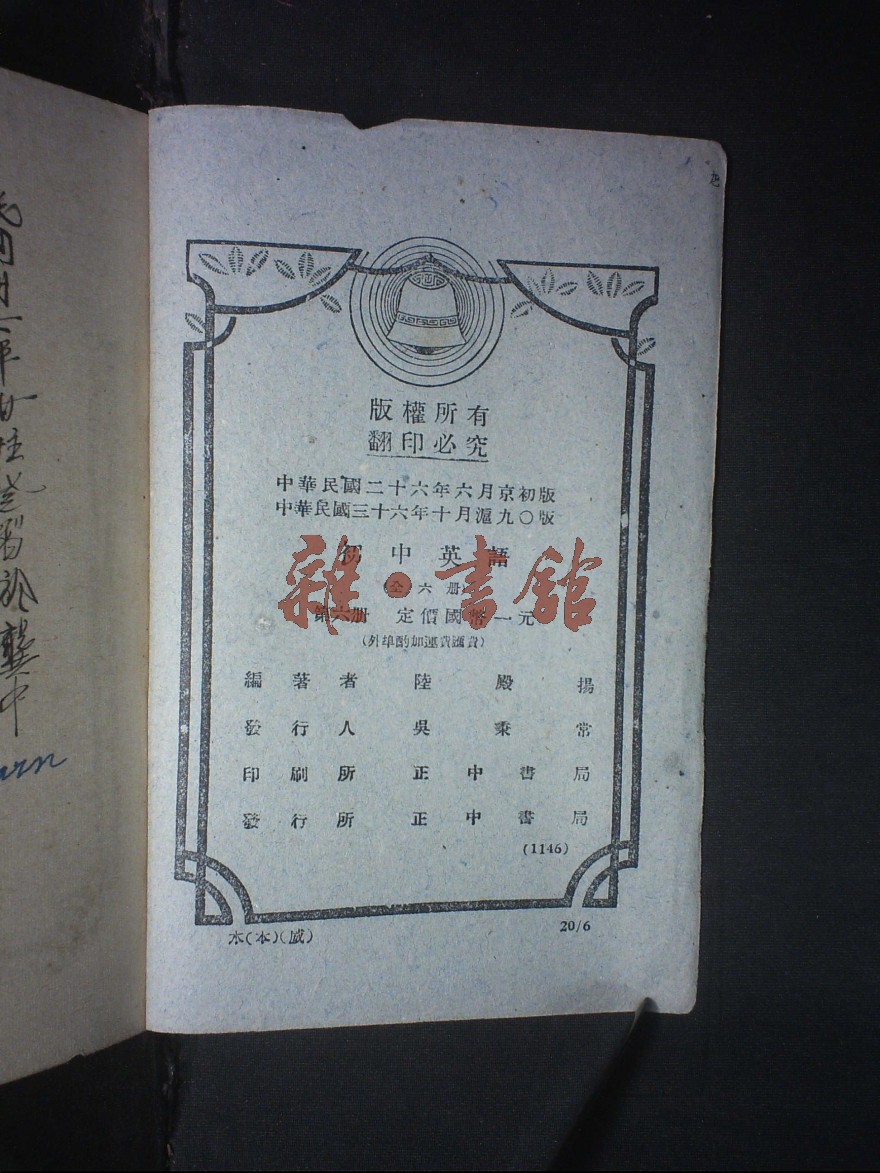 版權所有
翻印必究
中華民國二十六年六月京初版
中華民國三十六年十月滬九〇版
初中英語
(全六册)
第六册 定價國幣一元
(外埠酌加運費滙費)
編著者 陸殿揚
發行人 吳秉常
印刷所 正中書局
發行所 正中書局
(1146)
木(本)(威)
20/6
雜·書館